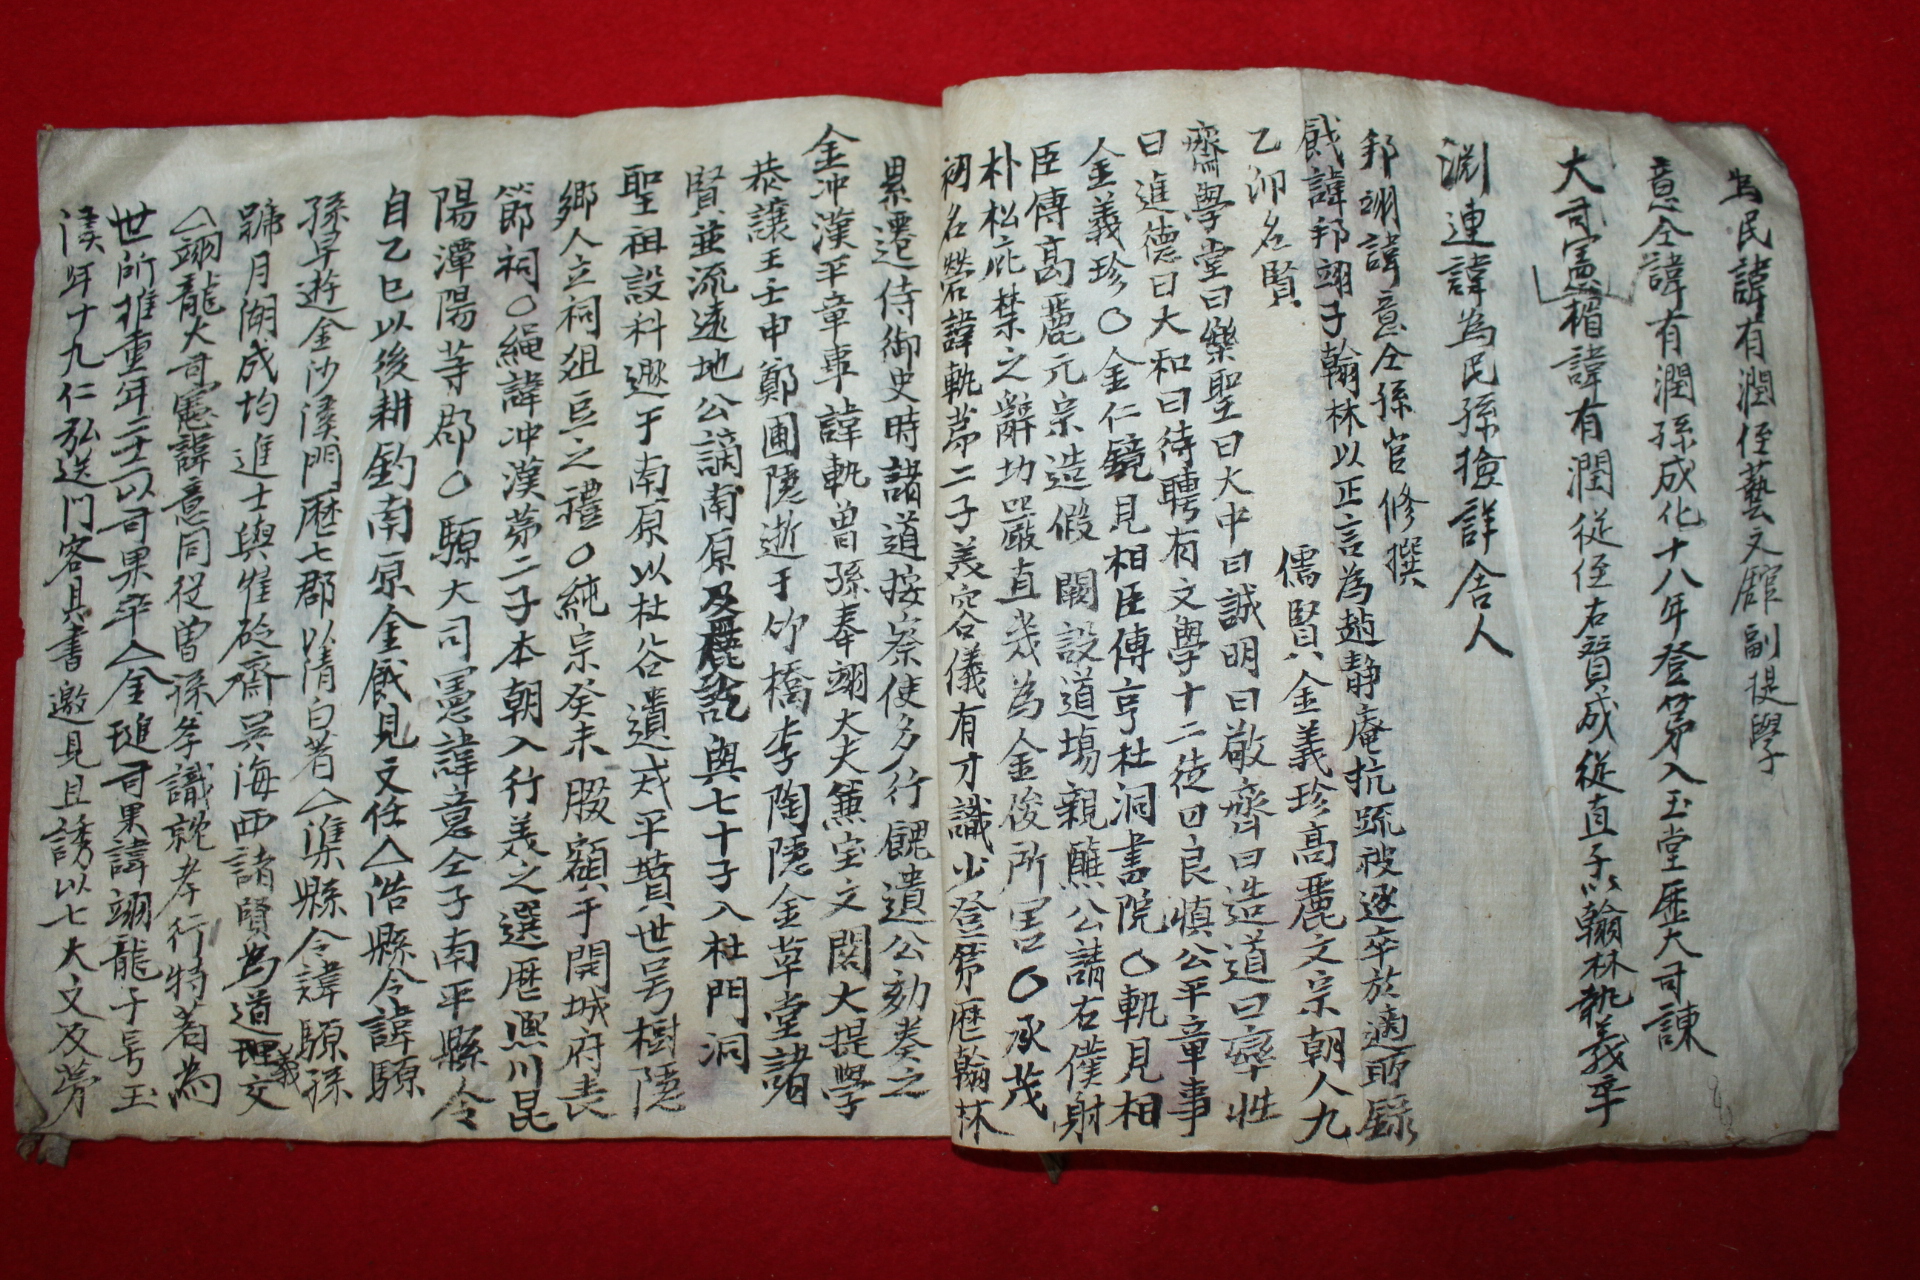 為民諱有潤侄藝文舘副提學
意仝諱有潤孫成化十八年登第入玉堂歷大司諫
大司憲楣諱有潤從侄右贊成從直子以翰林執義卒
淵連諱為民孫檢詳舍人
邦翊諱意仝孫官修撰
餞諱邦翊子翰林以正言為趙静庵抗疏被逐卒於適所錄
乙卯名賢
儒賢金義珍高麗文宗朝人九
齋學堂曰樂聖曰大中曰誠明曰敬齋曰造道曰率性
曰進德曰大和曰待聘有文學十二徒曰良慎公平章事
金義珍○金仁鏡見相臣傳亨杜洞書院○軌見相
臣傳高麗元宗造假闕設道場親醮公請右僕射
朴松庇禁之辭切嚴直幾為金俊所害○承茂
初名䓘諱軌第二子義容儀有才識少登第歷翰林
累遷侍御史時諸道按察使多行餽遺公劾奏之
金冲漢平章事諱軌曾孫奉翊大夫簾宝文閣大提學
恭讓王壬申鄭圃隱逝于竹橋李陶隱金草堂諸
賢並流遠地公謫南原及麗訖與七十子入杜門洞
聖祖設科遯于南原以杜谷遺戎平賁世号樹隱
鄉人立祠俎豆之禮○純宗癸未賜額于開城府表
節祠○繩諱冲漢第二子本朝入行義之選歷凞川昆
陽潭陽等郡○騵大司憲諱意仝子南平縣令
自乙巳以後耕釣南原金餞見文任△浩縣令諱騵
孫早遊金沙溪門歷七郡以清白著△準縣令諱騵孫
號月湖成均進士與崔砭齋吳海西諸賢為道義交
△翊龍大司憲諱意同從曾孫孝識就孝行特著為
世所推重年三十二以司果卒△金璡司果諱翊龍子号玉
溪年十九仁弘送門客具書邀見且誘以七大文及第